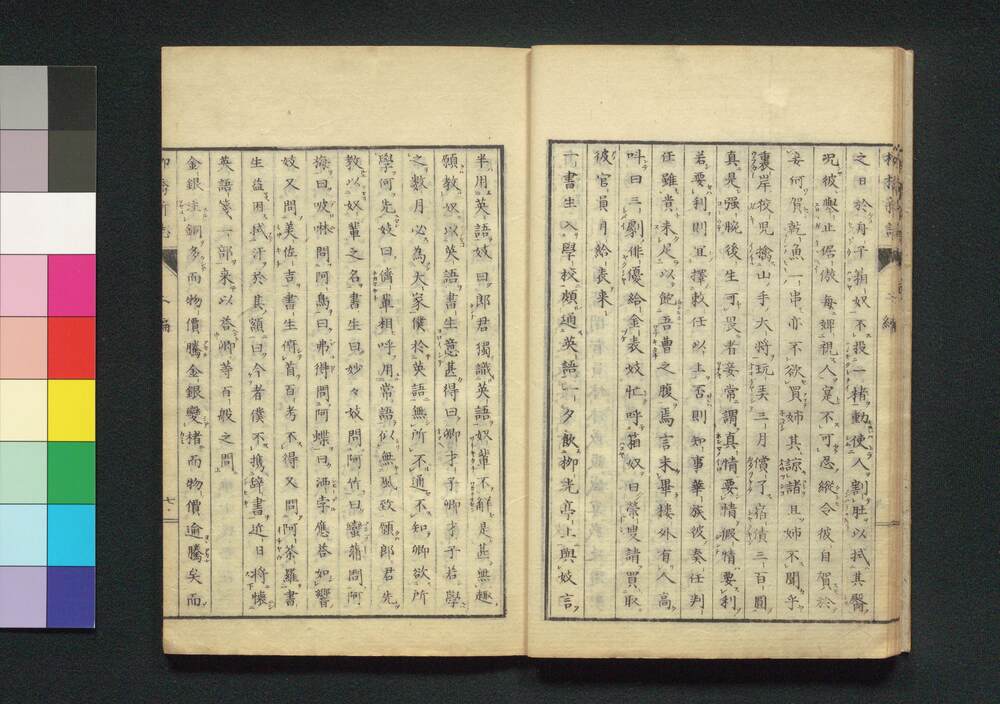 之日於月干箱奴不投一楮動使人割肚以拭其臀
児彼擧止倨傲毎婢視人寔不可忍縦令彼自賀於
妾何賀乾魚一串亦不欲買姉其諒諸且姉不聞乎
裏岸挍児擒山手大将玩美三月償了宿債三百圓
真是强腕後生可畏者妾常謂真情要情假情要利
若要利則宜擇敕任以上否則知事華族彼奏任判
任雖貴未足以飽吾曹之腹焉言未畢樓外有人高
叫曰三劇俳優給金表妓忙呼箱奴曰榮叟請買取
彼官員月給表来
書生入學校頗通英語一夕飲柳光亭上與妓言
半用英語妓曰郎君獨識英語奴輩不解是甚無趣
願教奴以英語書生意甚得曰卿才子卿才子若學
之數月必為大家僕於英語無所不通不知卿欲所
學何先妓曰儕輩相呼用常語似無風致願郎君先
教以奴輩之名書生曰妙々妓問阿竹曰蠻蒲問阿
梅曰啵啉問阿鳥曰弗得問阿蝶曰洒孛應答如響
妓又問美佐吉書生俯首百考不得又問阿茶羅書
生益困拭汗於其額曰今者僕不携辞書近日将懐
英語箋一部来以答卿等百般之問
金銀生銅多而物價騰金銀變楮而物價逾騰矣而
柳橋新誌 二編 七